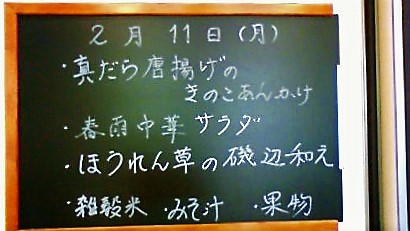 2月11日(月)
・真だら唐揚げの
きのこあんかけ
・春雨中華サラダ
・ほうれん草の磯辺和え
・雑穀米 ・みそ汁 ・果物